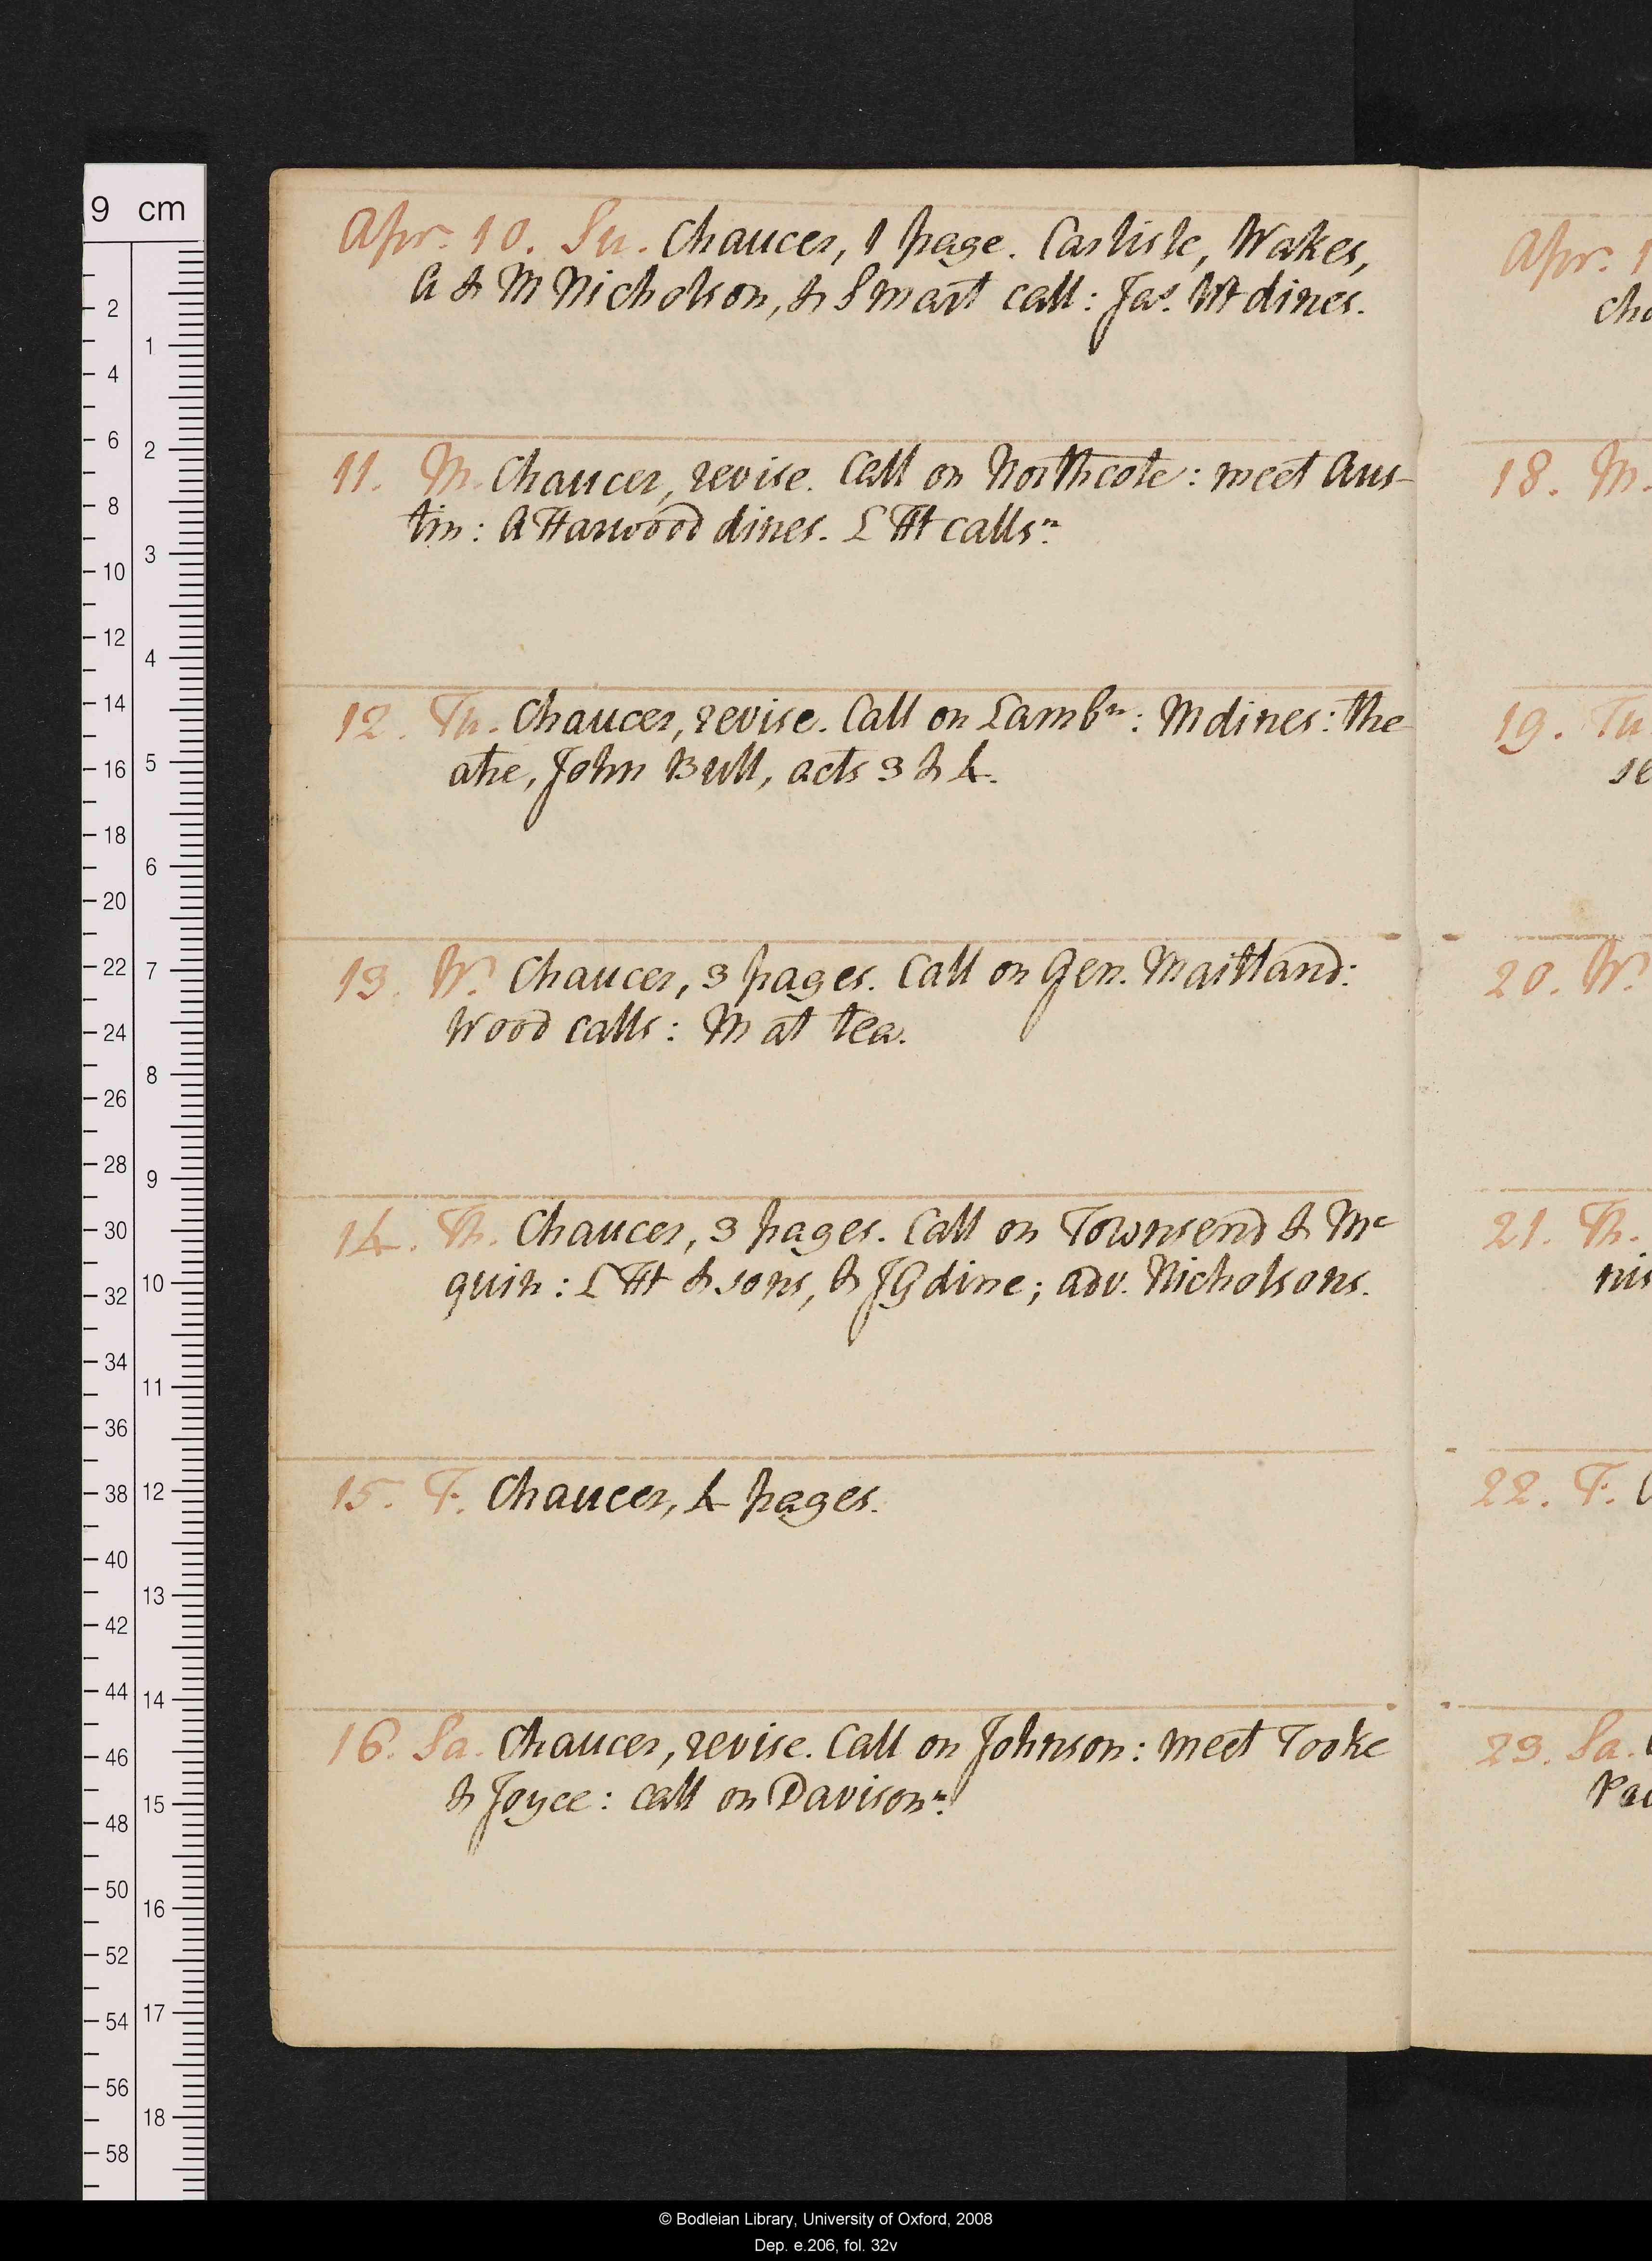 9 cm
Apr. 10. Su. Chaucer, 1 page. Carlisle, Wakes,
A & M Nicholson, & Smart call: Jas. Wt dines.
11. M. Chaucer, revise. Call on Northcote: meet Aus-
tin: A Harwood dines. L Ht callsn.
12. Tu. Chaucer, revise. Call on Lambn: M dines: the
atre, John Bull, acts 3 & 4.
13. W. Chaucer, 3 pages. Call on Gen. Maitland:
Wood calls: M at tea.
14. Th. Chaucer, 3 pages. Call on Townsend & Mc
quin: L Ht & sons, & JG dine; adv. Nicholsons.
15. F. Chaucer, 4 pages.
16. Sa. Chaucer, revise. Call on Johnson: meet Tooke
& Joyce: call on Davisonn.
Apr. 1
cha
18. M.
19. Tu
se
20. W.
21. Th.
nis
22. F. C
23. Sa.
© Bodleian Library, University of Oxford, 2008
Dep. e.206, fol. 32v